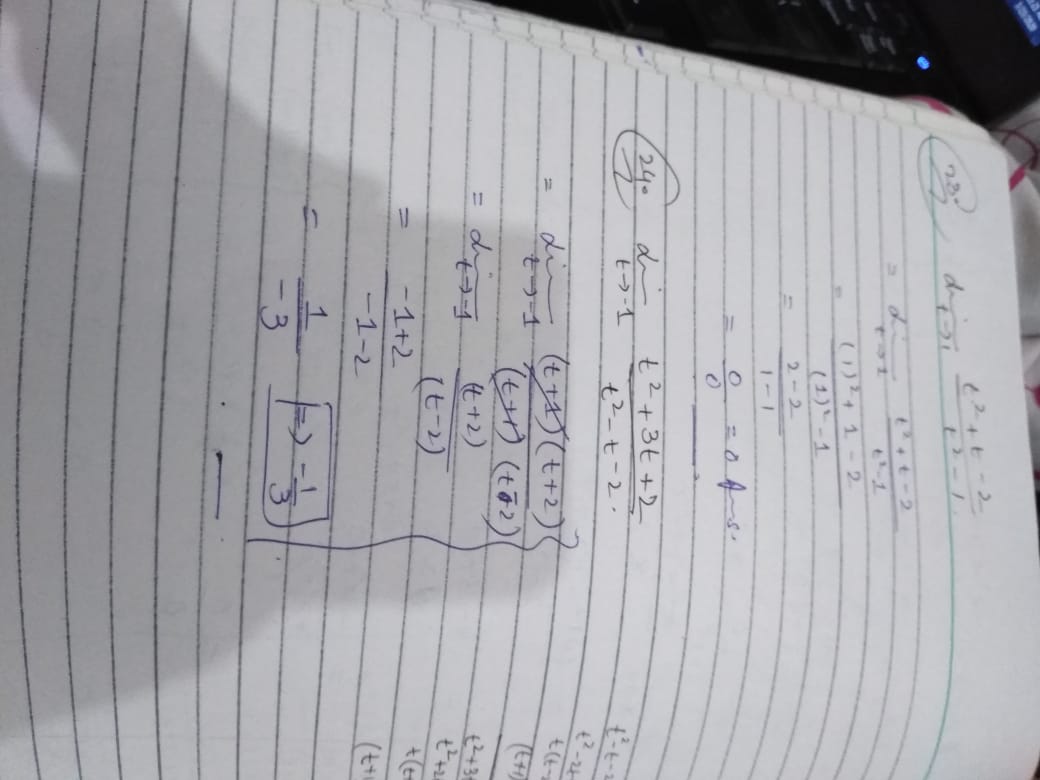 23. lim t→1 t²+t-2 / t²-1.
= lim t→1 t²+t-2 / t²-1
= (1)²+1-2 / (1)²-1
= 2-2 / 1-1
= 0/0 = 0 Ans.
24. lim t→-1 t²+3t+2 / t²-t-2.
= lim t→-1 (t+1)(t+2) / (t+1)(t-2)
= lim t→-1 (t+2) / (t-2)
= -1+2 / -1-2
= 1 / -3 => -1/3
t²-t-2
t²-2t
t(t-2
(t+1)
t²+3t
t²+2
t(t
(t+1